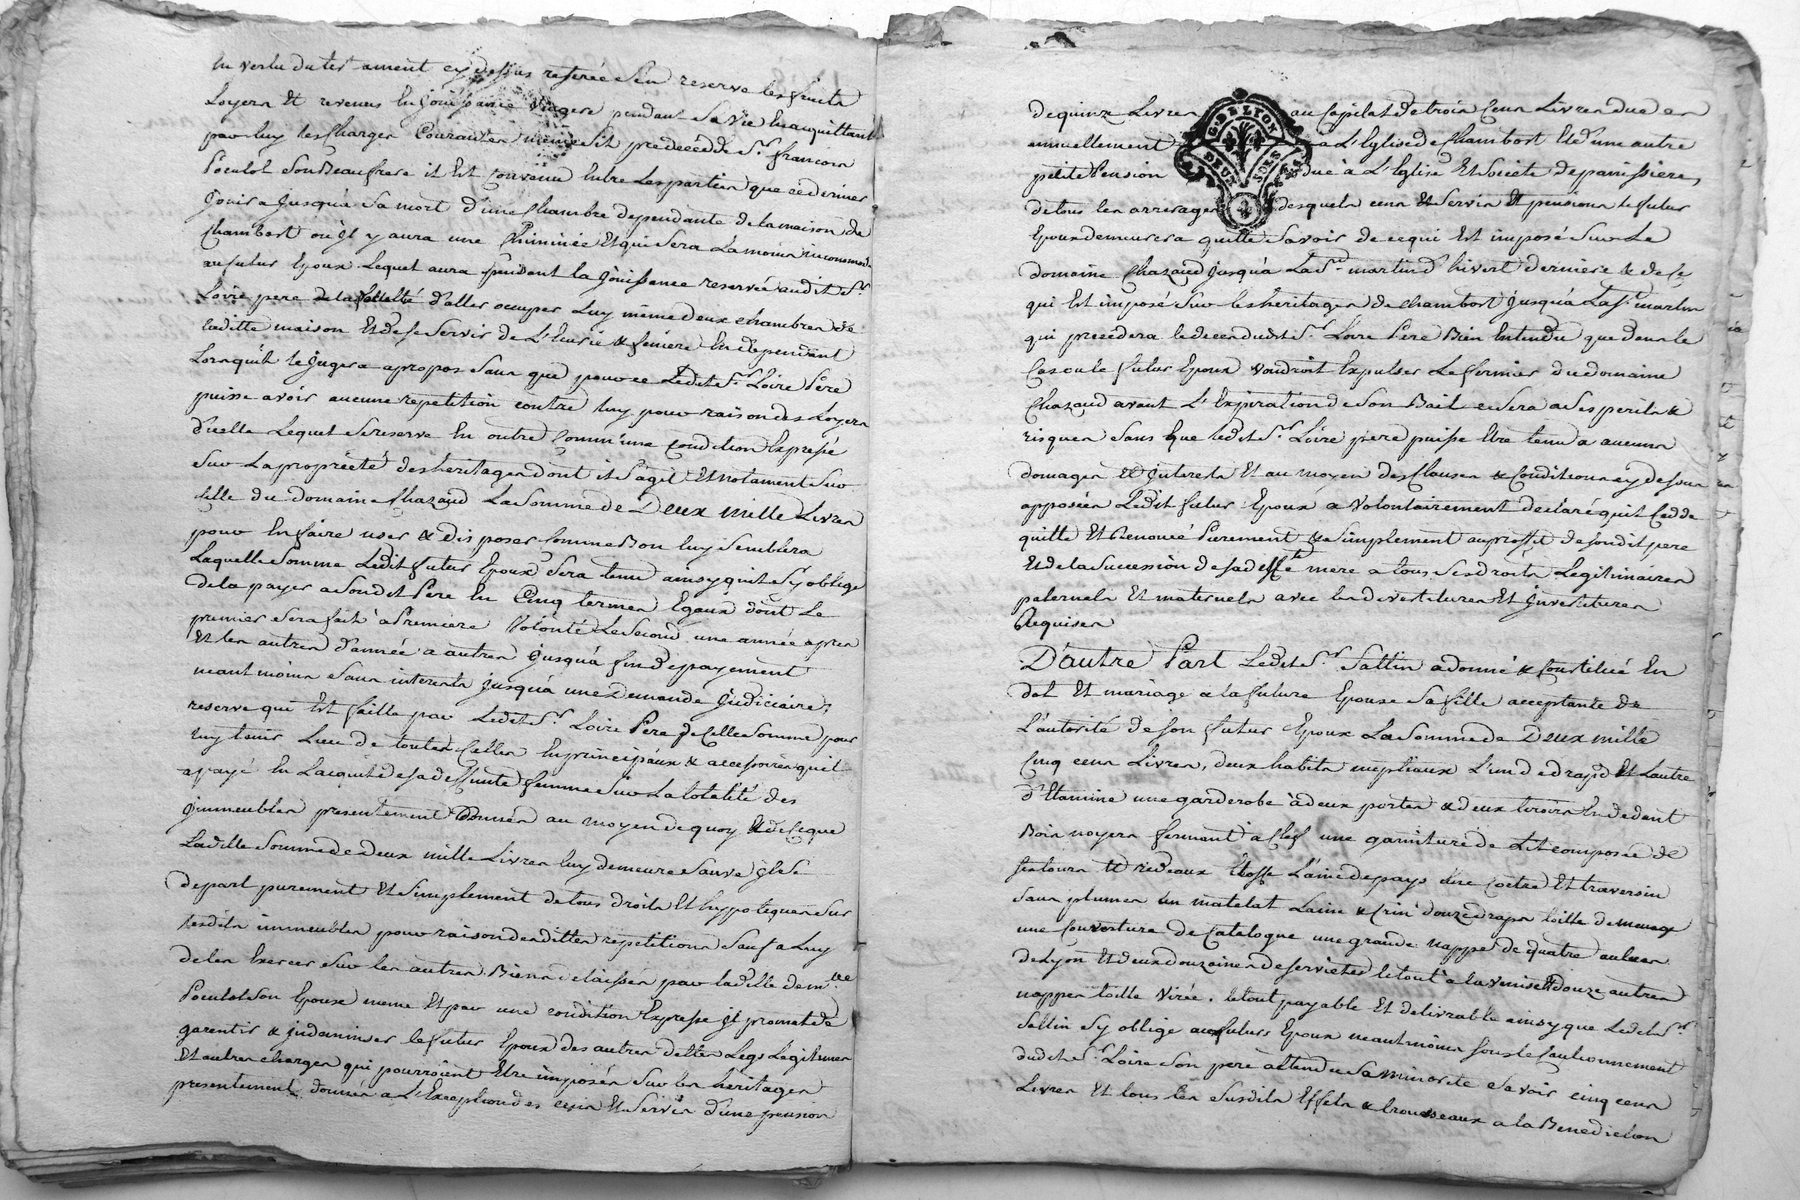 En vertu du testament cy dessus referée s'en reserve les fruits
Loyers et revenus En jouissance viagere pendant sa vie En acquittant
par luy les Charges Courantes même sit predecede Sr. francois
Poculot son Beaufrere il Est convenu Entre Les parties que ce dernier
Jouira jusqu'a sa mort d'une Chambre dependante de la maison de
Chambort ou jl y aura une Chiminée Et qui sera La moins incommode
au futur Epoux Lequel aura pendent la Jouissance reservée audit Sr.
Loire pere de la faculté d'aller occuper Luy même deux chambres de
laditte maison Et de se servir de L'Ecurie & feniere En dependent
Lorsquil le jugera apropos sans que pour ce Ledit Sr. Loire Père
puisse avoir aucune repetition contre luy pour raison des Loyers
d'icelle Lequel se reserve En outre Comm'une condition Expresse
sur La propriété des heritages dont il s'agit Et notament sur
celle du domaine Chazaud La Somme de Deux mille Livres
pour En faire user & disposer comme Bon luy semblera
Laquelle somme Ledit futur Epoux sera tenu ainsy quil s'y oblige
de la payer a Sondit Pere En Cinq termes Egaux dont Le
premier sera fait à Premiere Volonté Le second une année apres
Et les autres d'année a autres jusqu'a fin De payement
neantmoins sans interests jusqu'a une Demande Judiciaire,
reserve qui Est faitte par Ledit Sr. Loire Pere de Celle Somme pour
luy tenir Lieu de toutes Celles En principaux & accessoires quil
a payé En L'acquit de sa deffunte femme sur La totalité des
jmmeubles presentement Donnés au moyen de quoy Et de Ceque
Laditte somme de Deux mille Livres luy demeure sauve jl se
depart purement Et simplement de tous droits Et hyppoteques sur
lesdits immeubles pour raison desdittes repetitions sauf a Luy
de les Exercer sur les autres Biens delaissés par laditte dem.lle
Poculot son Epouse meme Et par une condition Expresse jl promet de
garentir & jndamniser le futur Epoux des autres dettes Legs Legitimes
Et autres charges qui pourroient Etre imposés Sur les heritages
presentement donnés a L'Exception des cens Et Servis d'une pension
de quinze Livres au Capital De trois Cens Livres due en
annuellement a L'Eglise de Chambort Et d'une autre
petite Pension duë à L'Eglise Et Societe de panissiere,
de tous les arrerages desquels cens Et Servis Et pensions le futur
Epoux demeurera quitte Savoir de ce qui Est imposé Sur Le
domaine Chazaud jusqu'a La St. martin d'hivert derniere & de Ce
qui Est imposé Sur les heritages de chambort jusqu'a La St. martin
qui precedera le deces dudit Sr. Loire Pere Bien Entendu que dans le
Cas ou le futur Epoux voudroit Expulser Le fermier du domaine
Chazaud avant L'Expiration de son Bail ce sera a ses perils &
risques sans que ledit Sr. Loire pere puisse Etre tenu a aucuns
domages Et jnterets Et au moyen des Clauses & Conditions cy dessus
apposées Ledit futur Epoux a Volontairement declaré quil Cedde
quitte Et Renonce Purement & simplement au proffit de sondit pere
Et de la Succession de sa deffte. mere a tous ses droits Legitimaires
paternels Et maternels avec les devestitures Et jnvestitures
Requises
D'autre Part Ledit Sr. Sattin a donné & Constitué En
dot Et mariage a la future Epouse Sa fille acceptante de
L'autorité de son futur Epoux La Somme de Deux mille
Cinq cens Livres, deux habits nuptiaux L'un de drap Et L'autre
d'Etamine une garderobe à deux portes & deux tiroirs En dedant
Bois noyers fermant a Clef une garniture de Lit composée de
sestours Et rideaux Etoffe Laine de pays une Coëtre Et traversin
sans plumes un matelat Laine & Crin douze draps toille de menage
une Couverture de Catalogue une grande nappe de quatre aulnes
de Lyon Et deux douzaines de serviettes le tout à la venise Et douze autres
nappes toille virée. le tout payable Et delivrable ainsy que Ledit Sr.
Sattin s'y oblige au futur Epoux neantmoins sous le Cautionnement
dudit Sr. Loire Son pere attendu Sa minorité Savoir cinq cens
Livres Et tous les Susdits Effets & trousseaux a la Benediction
G. DE LYON
DEUX SOLS